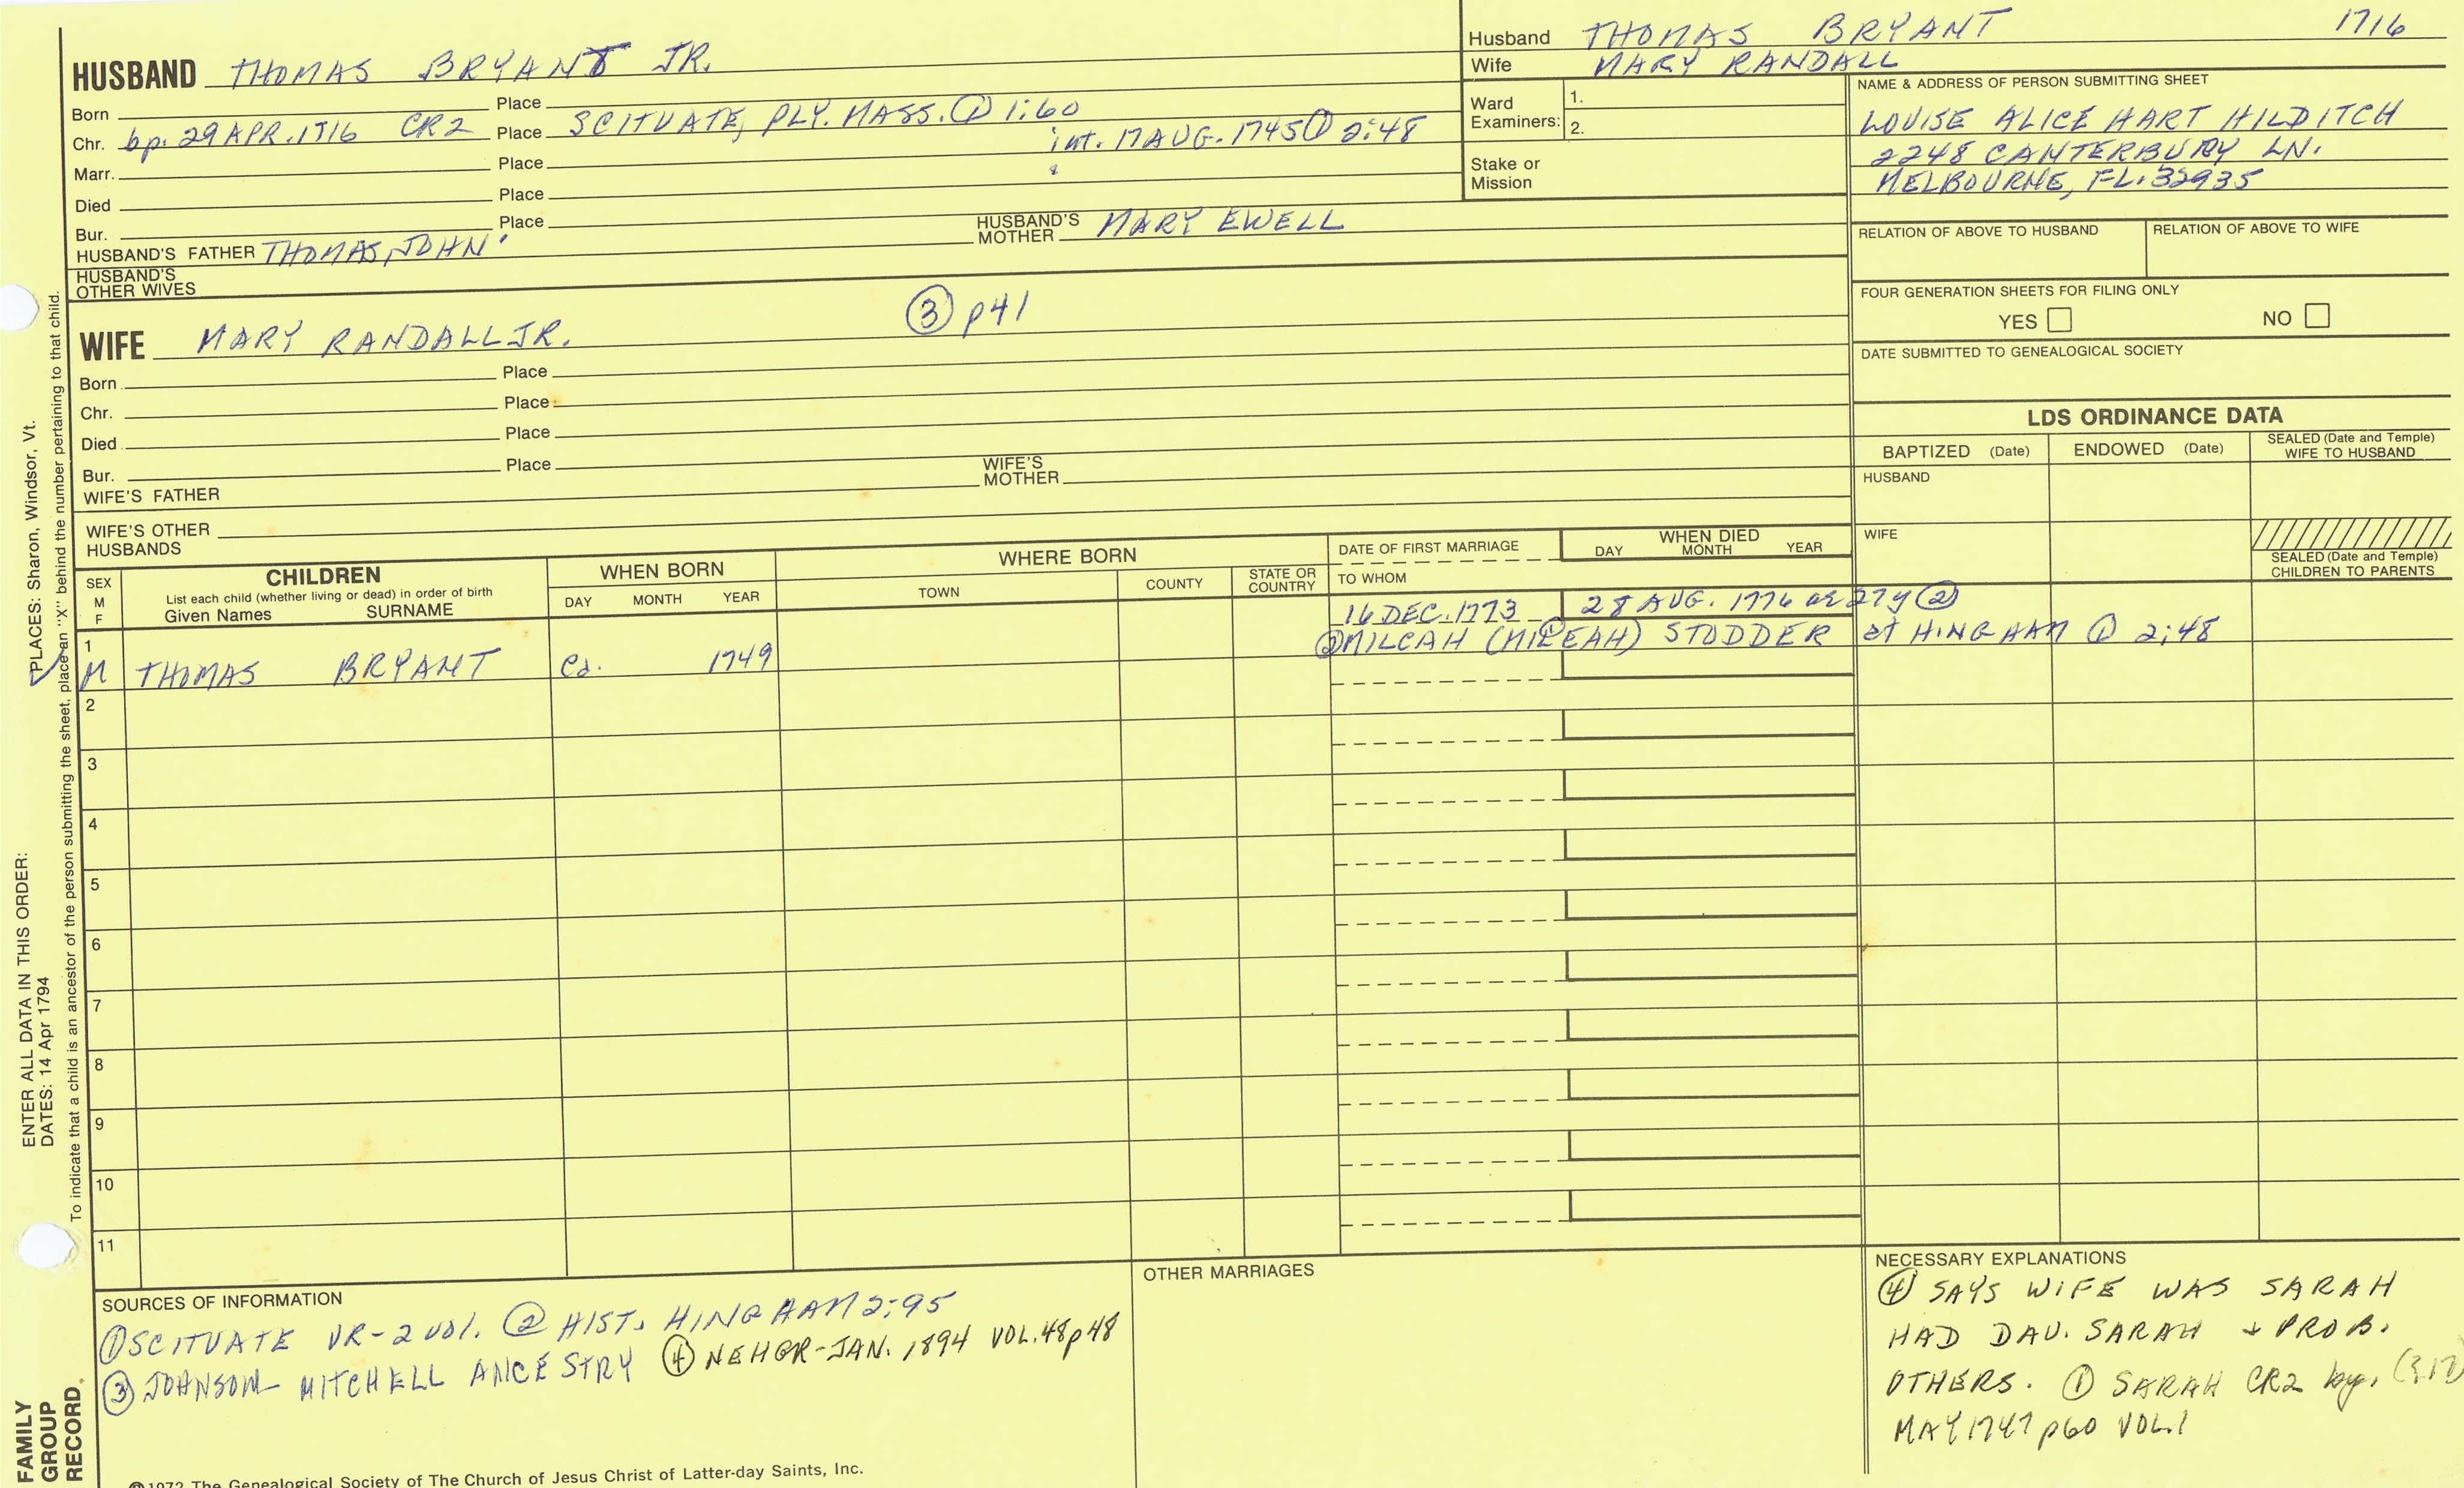 HUSBAND THOMAS BRYANT JR.
Born Place
Chr. bp. 29 APR. 1716 CR2 Place SCITUATE, PLY. MASS. ① 1:60
Marr. Place int. 17 AUG. 1745 ① 2:48
Died Place
Bur. Place
HUSBAND'S FATHER THOMAS, JOHN HUSBAND'S MOTHER MARY EWELL
HUSBAND'S OTHER WIVES
③ p41
WIFE MARY RANDALL JR.
Born Place
Chr. Place
Died Place
Bur. Place
WIFE'S FATHER WIFE'S MOTHER
WIFE'S OTHER HUSBANDS
Husband THOMAS BRYANT 1716
Wife MARY RANDALL
Ward Examiners: 1.
2.
Stake or Mission
NAME & ADDRESS OF PERSON SUBMITTING SHEET
LOUISE ALICE HART HILDITCH
2248 CANTERBURY LN.
MELBOURNE, FL. 32935
RELATION OF ABOVE TO HUSBAND RELATION OF ABOVE TO WIFE
FOUR GENERATION SHEETS FOR FILING ONLY
YES NO
DATE SUBMITTED TO GENEALOGICAL SOCIETY
LDS ORDINANCE DATA
BAPTIZED (Date) ENDOWED (Date) SEALED (Date and Temple) WIFE TO HUSBAND
HUSBAND
WIFE
SEALED (Date and Temple) CHILDREN TO PARENTS
SEX M F
CHILDREN
List each child (whether living or dead) in order of birth
Given Names SURNAME
WHEN BORN
DAY MONTH YEAR
WHERE BORN
TOWN COUNTY STATE OR COUNTRY
DATE OF FIRST MARRIAGE
TO WHOM
WHEN DIED
DAY MONTH YEAR
1
M THOMAS BRYANT Ca. 1749
16 DEC. 1773 28 AUG. 1776 ae 27y ②
② MILCAH (MILEAH) ① STODDER at HINGHAM ① 2:48
2
3
4
5
6
7
8
9
10
11
SOURCES OF INFORMATION
① SCITUATE VR-2 VOL. ② HIST. HINGHAM 2:95
③ JOHNSON MITCHELL ANCESTRY ④ NEHGR-JAN. 1894 VOL. 48 p 48
OTHER MARRIAGES
NECESSARY EXPLANATIONS
④ SAYS WIFE WAS SARAH
HAD DAU. SARAH + PROB.
OTHERS. ① SARAH CR2 bp.
MAY 1747 p60 VOL. 1
©1972 The Genealogical Society of The Church of Jesus Christ of Latter-day Saints, Inc.
FAMILY GROUP RECORD
ENTER ALL DATA IN THIS ORDER:
DATES: 14 Apr 1794
PLACES: Sharon, Windsor, Vt.
To indicate that a child is an ancestor of the person submitting the sheet, place an "X" behind the number pertaining to that child.